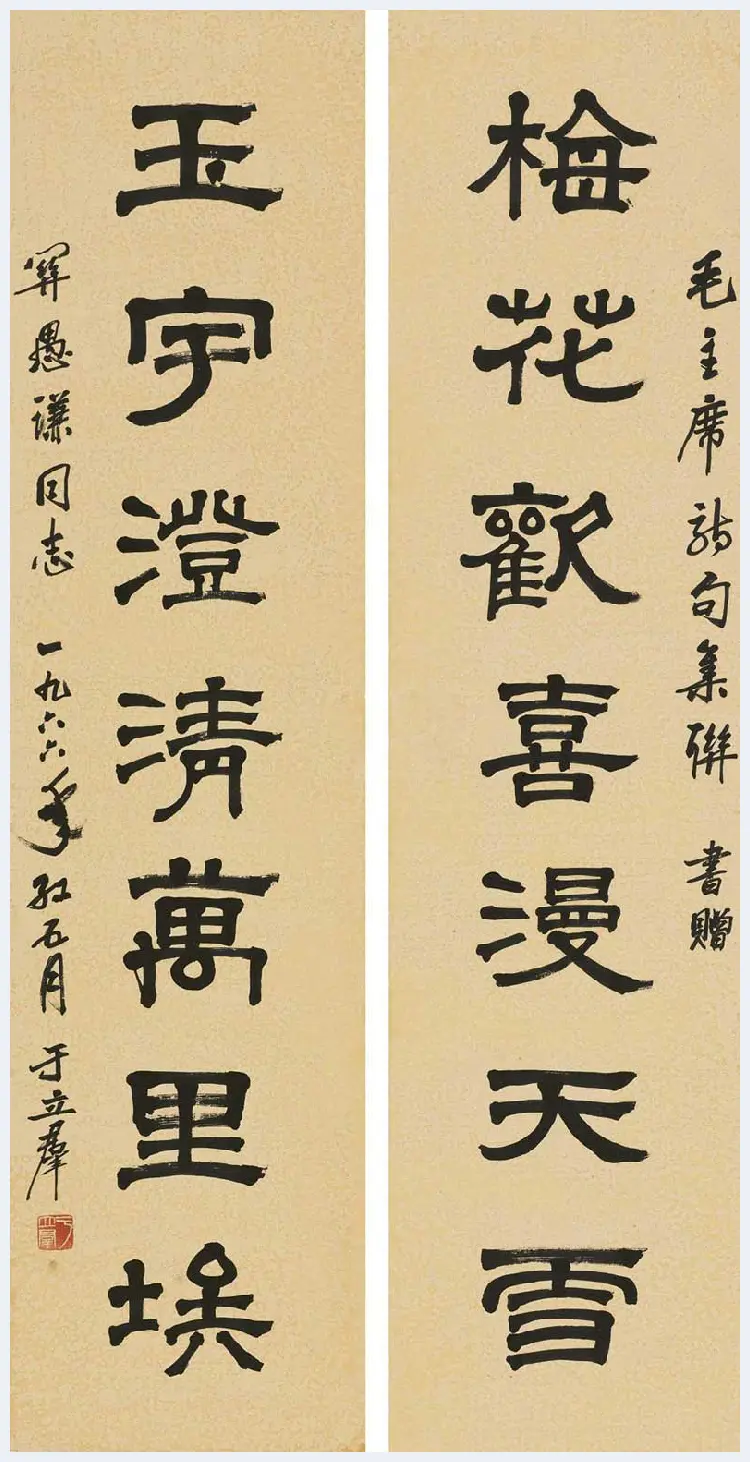 毛主席詩句集聯 書贈
梅花歡喜漫天雪
玉宇澄清萬里埃
關愚謙同志 一九六六年 五月 于立羣